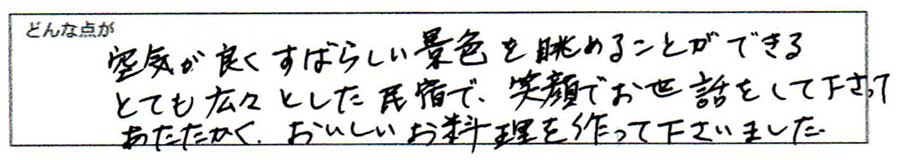 どんな点が
空気が良くすばらしい景色を眺めることができる
とても広々とした民宿で、笑顔でお世話をして下さって
あたたかく、おいしいお料理を作って下さいました